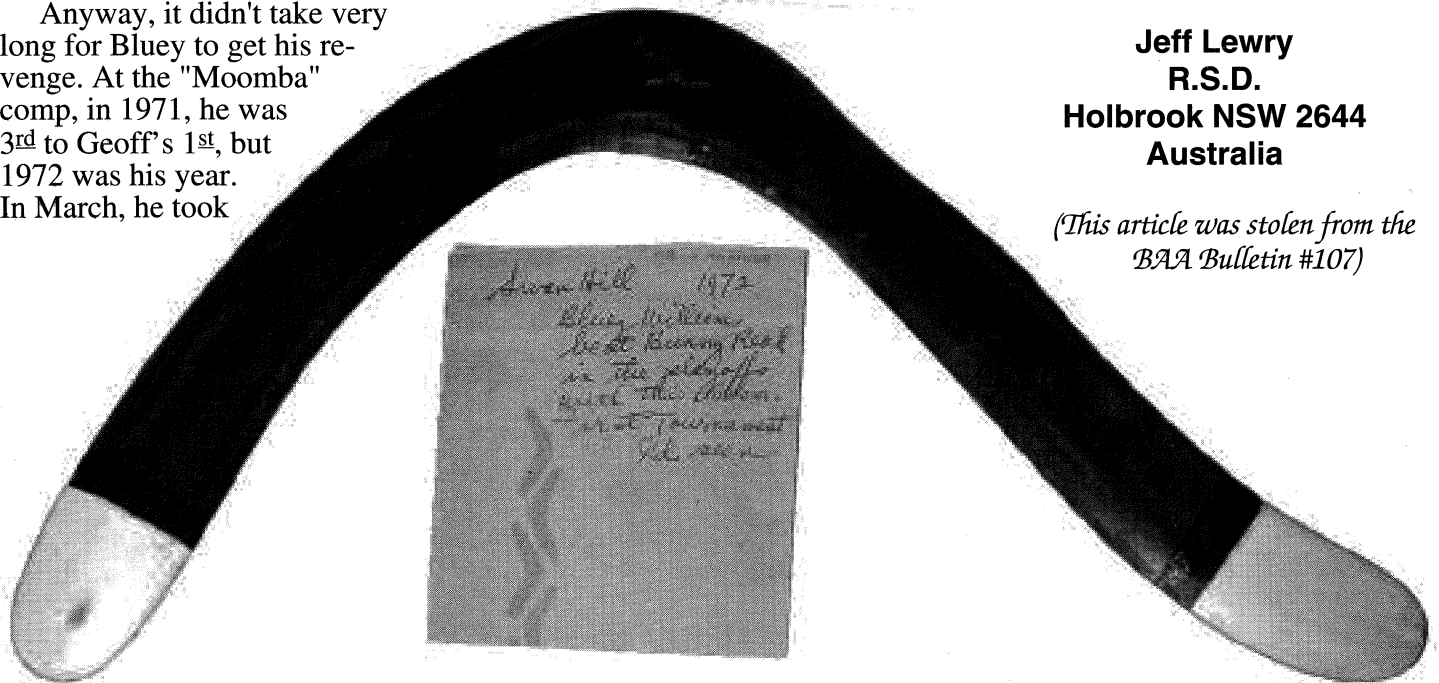 Anyway, it didn't take very
long for Bluey to get his re-
venge. At the "Moomba"
comp, in 1971, he was
3rd to Geoff's 1st, but
1972 was his year.
In March, he took
Jeff Lewry
R.S.D.
Holbrook NSW 2644
Australia
(This article was stolen from the
BAA Bulletin #107)
Swan Hill 1972
Bluey
beat Bunny Read
in the playoffs
with this
Tournament